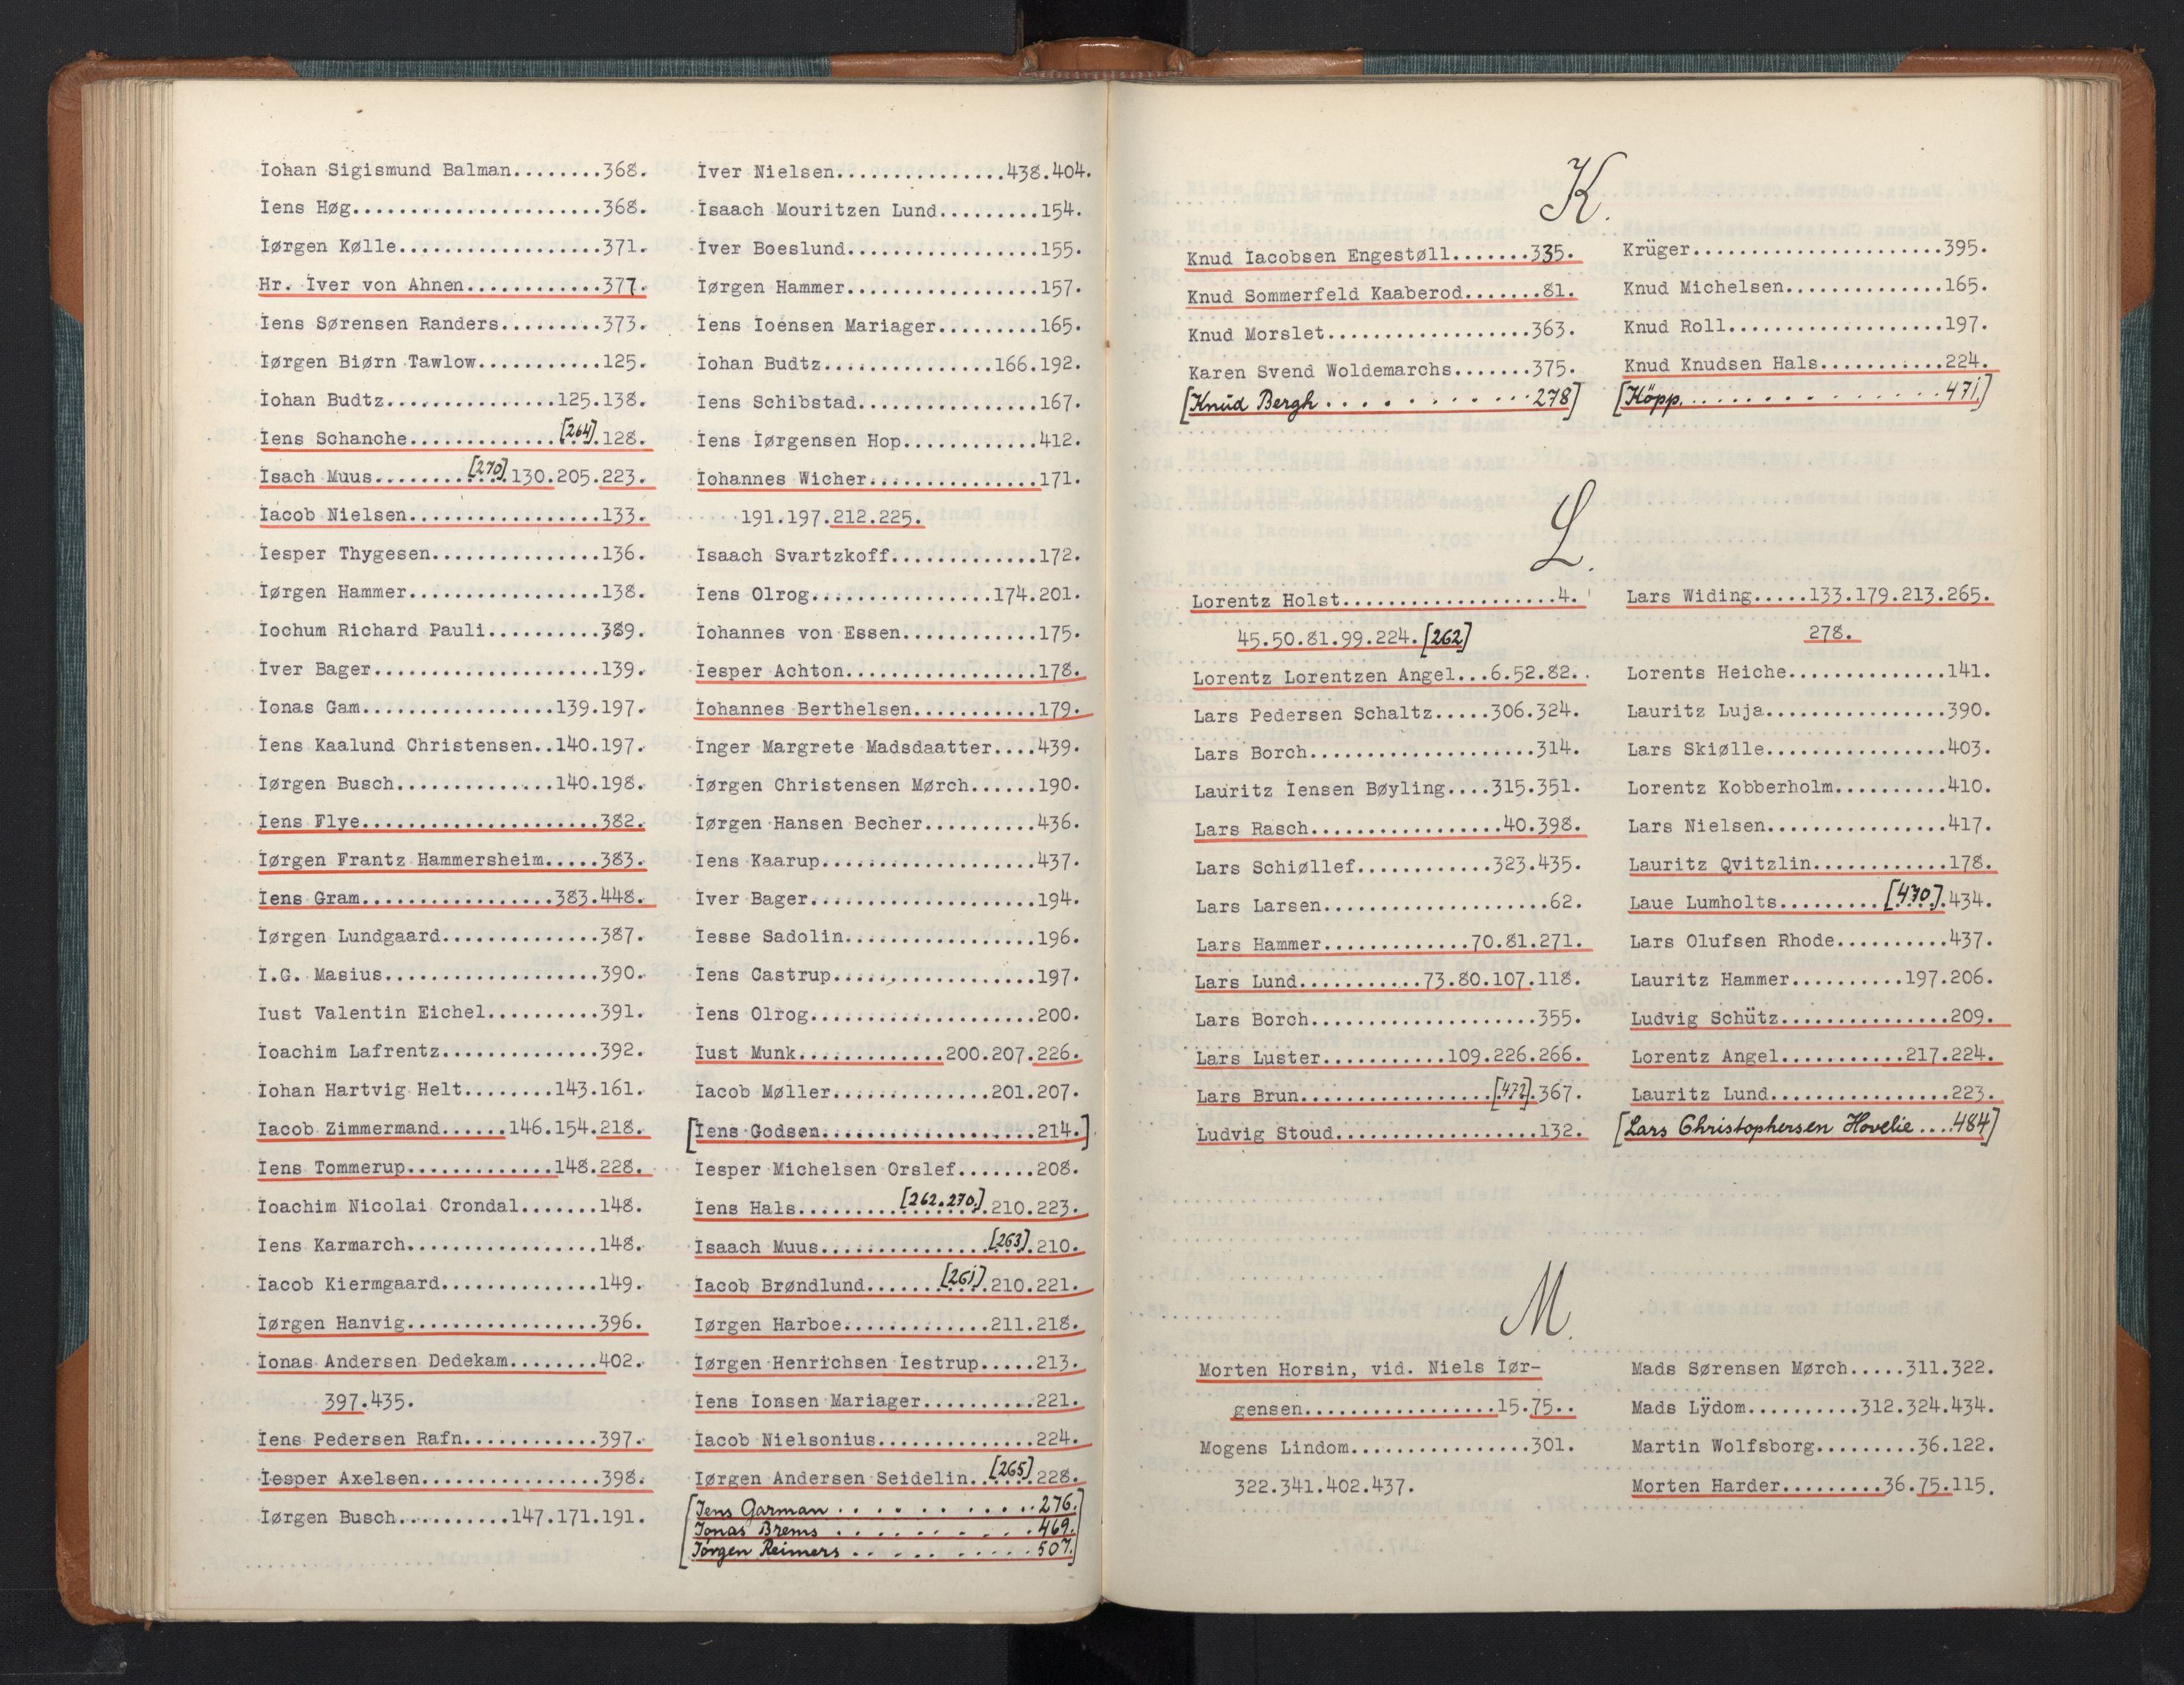 Iohan Sigismund Balman........368.
Iens Høg......................368.
Iørgen Kølle..................371.
Hr. Iver von Ahnen............377.
Iens Sørensen Randers.........373.
Iørgen Biørn Tawlow...........125.
Iohan Budtz...............125.138.
Iens Schanche.............[264].128.
Isach Muus........[270].130.205.223.
Iacob Nielsen.................133.
Iesper Thygesen...............136.
Iørgen Hammer.................138.
Iochum Richard Pauli..........389.
Iver Bager....................139.
Ionas Gam.................139.197.
Iens Kaalund Christensen..140.197.
Iørgen Busch..............140.198.
Iens Flye.....................382.
Iørgen Frantz Hammersheim.....383.
Iens Gram.................383.448.
Iørgen Lundgaard..............387.
I.G. Masius...................390.
Iust Valentin Eichel..........391.
Ioachim Lafrentz..............392.
Iohan Hartvig Helt........143.161.
Iacob Zimmermand......146.154.218.
Iens Tommerup.............148.228.
Ioachim Nicolai Crondal.......148.
Iens Karmarch.................148.
Iacob Kiermgaard..............149.
Iørgen Hanvig.................396.
Ionas Andersen Dedekam........402.
397.435.
Iens Pedersen Rafn............397.
Iesper Axelsen................398.
Iørgen Busch..........147.171.191.
Iver Nielsen...............438.404.
Isaach Mouritzen Lund.........154.
Iver Boeslund.................155.
Iørgen Hammer.................157.
Iens Ioénsen Mariager.........165.
Iohan Budtz...............166.192.
Iens Schibstad................167.
Iens Iørgensen Hop............412.
Iohannes Wicher...............171.
191.197.212.225.
Isaach Svartzkoff.............172.
Iens Olrog................174.201.
Iohannes von Essen............175.
Iesper Achton.................178.
Iohannes Berthelsen...........179.
Inger Margrete Madsdaatter....439.
Iørgen Christensen Mørch......190.
Iørgen Hansen Becher..........436.
Iens Kaarup...................437.
Iver Bager....................194.
Iesse Sadolin.................196.
Iens Castrup..................197.
Iens Olrog....................200.
Iust Munk.............200.207.226.
Iacob Møller..............201.207.
[Iens Godsen...................214.]
Iesper Michelsen Orslef.......208.
Iens Hals.........[262.270.].210.223.
Isaach Muus...............[263].210.
Iacob Brøndlund.......[261].210.221.
Iørgen Harboe.............211.218.
Iørgen Henrichsen Iestrup.....213.
Iens Ionsen Mariager..........221.
Iacob Nielsonius..............224.
Iørgen Andersen Seidelin..[265].228.
[Jens Garman . . . . . . . . . . 276.
Jonas Brems . . . . . . . . . . 469.
Jörgen Reimers . . . . . . . . . . 507.]
K.
Knud Iacobsen Engestøll.......335.
Knud Sommerfeld Kaaberod.......81.
Knud Morslet..................363.
Karen Svend Woldemarchs.......375.
[Knud Bergh . . . . . . . . . . 278]
Krüger.......................395.
Knud Michelsen...............165.
Knud Roll....................197.
Knud Knudsen Hals............224.
[Köpp. . . . . . . . . . . . . 471.]
L.
Lorentz Holst...................4.
45.50.81.99.224.[262]
Lorentz Lorentzen Angel...6.52.82..
Lars Pedersen Schaltz.....306.324.
Lars Borch....................314.
Lauritz Iensen Bøyling....315.351.
Lars Rasch.................40.398.
Lars Schiøllef............323.435.
Lars Larsen....................62.
Lars Hammer.............70.81.271.
Lars Lund...........73.80.107.118.
Lars Borch....................355.
Lars Luster...........109.226.266.
Lars Brun.................[472].367.
Ludvig Stoud..................132.
Lars Widing.....133.179.213.265.
278.
Lorents Heiche..............141.
Lauritz Luja................390.
Lars Skiølle................403.
Lorentz Kobberholm..........410.
Lars Nielsen................417.
Lauritz Qvitzlin............178.
Laue Lumholts.........[470].434.
Lars Olufsen Rhode..........437.
Lauritz Hammer..........197.206.
Ludvig Schütz...............209.
Lorentz Angel...........217.224.
Lauritz Lund................223.
[Lars Christophersen Hovelie....484]
M.
Morten Horsin, vid. Niels Iør-
gensen.................15.75..
Mogens Lindom................301.
322.341.402.437.
Mads Sørensen Mørch.....311.322.
Mads Lÿdom..........312.324.434.
Martin Wolfsborg.........36.122.
Morten Harder.........36.75.115.